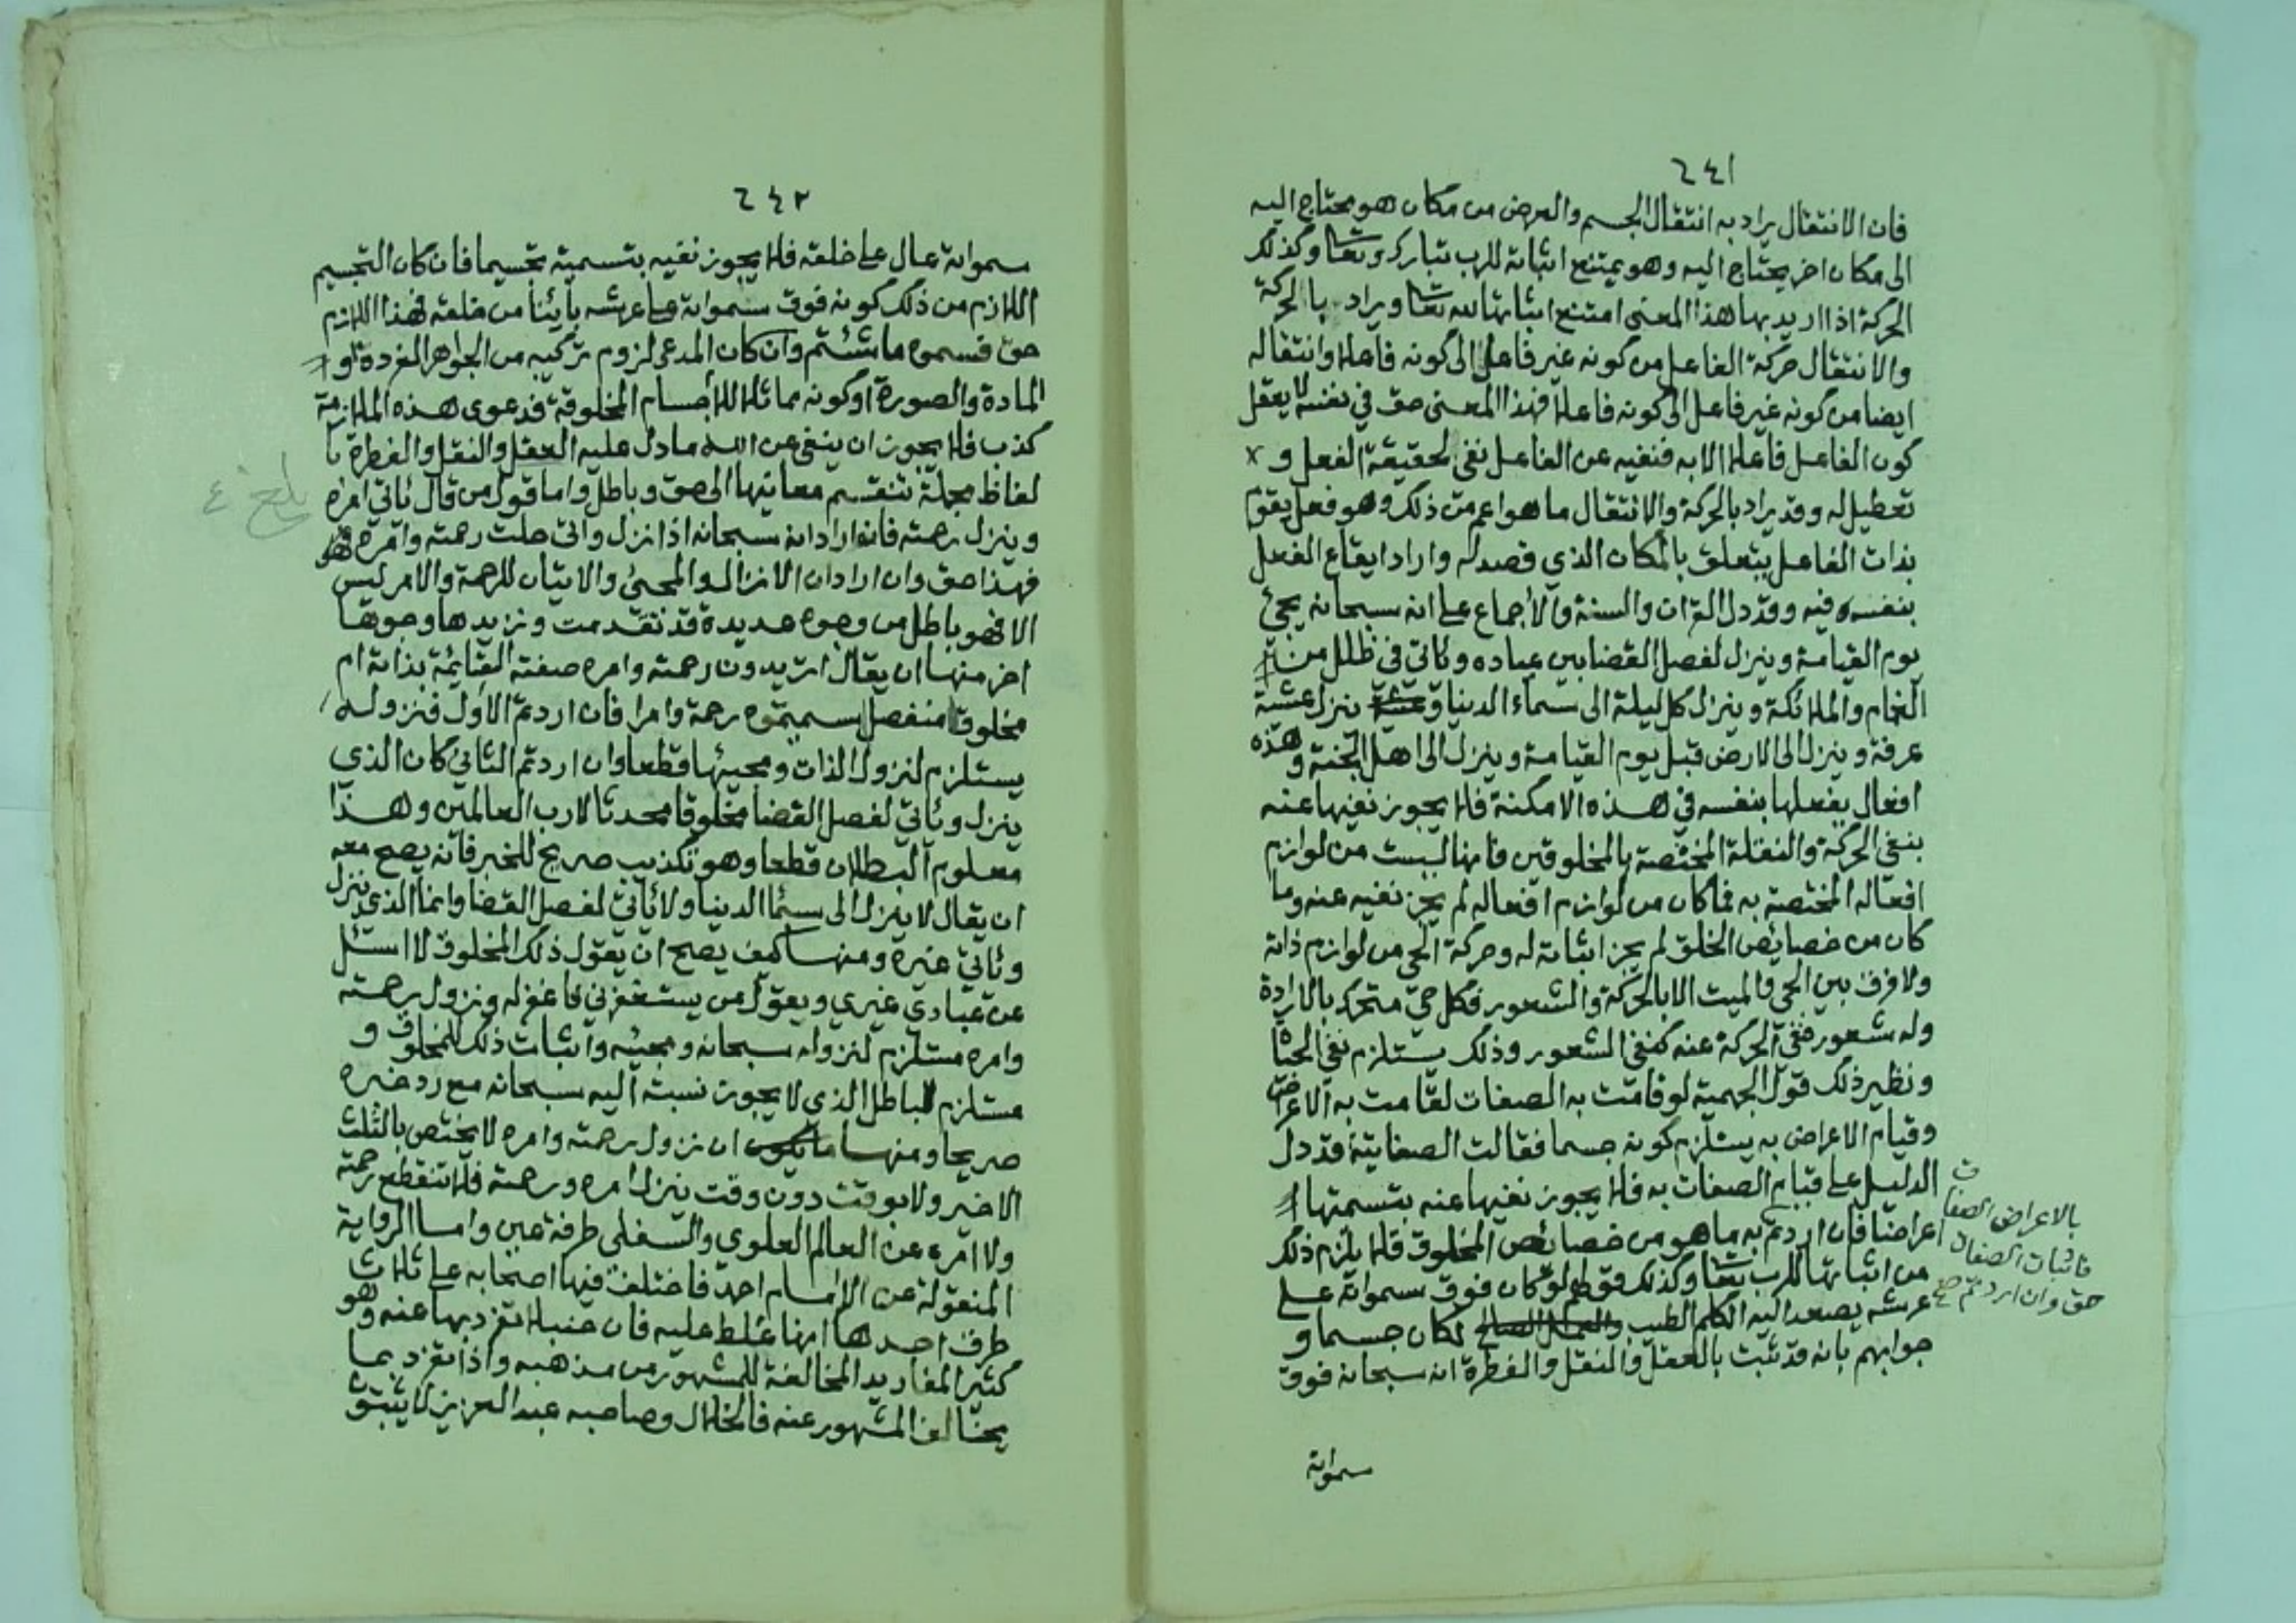 ٢٤١
فان الانتقال يراد به انتقال الجسم والعرض من مكان هو محتاج اليه
الى مكان اخر يحتاج اليه وهو يمتنع اثباته للرب تبارك وتعا وكذلك
الحركة اذا اريد بها هذا المعنى امتنع اثباتها لله تعا ويراد بالحركة
والانتقال حركة الفاعل من كونه غير فاعل الى كونه فاعلا وانتقاله
ايضا من كونه غير فاعل الى كونه فاعلا فهذا المعنى حق في نفسه لا يعقل
كون الفاعل فاعلا الا به فنفيه عن الفاعل نفي لحقيقة الفعل و
تعطيل له وقد يراد بالحركة والانتقال ما هو اعم من ذلك وهو فعل يقوم
بذات الفاعل يتعلق بالمكان الذي قصد له واراد ايقاع الفعل
بنفسه فيه وقد دل القران والسنة والاجماع على انه سبحانه يجئ
يوم القيامة وينزل لفصل القضا بين عباده وياتي في ظلل من
الغمام والملائكة وينزل كل ليلة الى سماء الدنيا وينزل عشية
عرفة وينزل الى الارض قبل يوم القيامة وينزل الى اهل الجنة وهذه
افعال يفعلها بنفسه في هذه الامكنة فلا يجوز نفيها عنه
بنفي الحركة والنقلة المختصة بالمخلوقين فانها ليست من لوازم
افعاله المختصة به فما كان من لوازم افعاله لم يجز نفيه عنه وما
كان من خصايص الخلق لم يجز اثباته له وحركة الحي من لوازم ذاته
ولا فرق بين الحي والميت الا بالحركة والشعور فكل حي متحرك بالارادة
وله شعور فنفي الحركة عنه كنفي الشعور وذلك يستلزم نفي الحياة
ونظير ذلك قول الجهمية لو قامت به الصفات لقامت به الاعراض
وقيام الاعراض به يستلزم كونه جسما فقالت الصفاتية قد دل
الدليل على قيام الصفات به فلا يجوز نفيها عنه بتسميتها
اعراضا فان اردتم به ما هو من خصائص المخلوق فلا يلزم ذلك
من اثباتها للرب تعا وكذلك قولهم لو كان فوق سمواته على
عرشه يصعد اليه الكلم الطيب والعمل الصالح لكان جسما و
جوابهم بانه قد ثبت بالعقل والنقل والفطرة انه سبحانه فوق
سمواته
بالاعراض الصفات
فاثبات الصفات
حق وان اردتم صح
٢٤٢
سمواته عال على خلقه فلا يجوز نفيه بتسميته تجسيما فان كان التجسيم
اللازم من ذلك كونه فوق سمواته على عرشه بائنا من خلقه فهذا اللازم
حق فسموه ما شئتم وان كان المدعى لزوم تركيبه من الجواهر المفردة او
المادة والصورة او كونه مماثلا للاجسام المخلوقة فدعوى هذه الملازمة
كذب فلا يجوز ان ينفى عن الله ما دل عليه العقل والنقل والفطرة با
لفاظ مجملة تنقسم معانيها الى حق وباطل واما قول من قال ياتي امره
وينزل رحمته فان اراد انه سبحانه اذا نزل واتى حلت رحمته وامره
فهذا حق وان اراد ان الانزال والمجئ والاتيان للرحمة والامر ليس
الا فهو باطل من وجوه عديدة قد تقدمت ونزيدها وجوها
اخر منها ان يقال اتريدون رحمته وامره صفته القايمة بذاته ام
مخلوقا منفصل سميتموه رحمة وامرا فان اردتم الاول فنزوله
يستلزم لنزول الذات ومجيئها قطعا وان اردتم الثاني كان الذي
ينزل وياتي لفصل القضا مخلوقا محدثا لا رب العالمين وهذا
معلوم البطلان قطعا وهو تكذيب صريح للخبر فانه يصح معه
ان يقال لا ينزل الى سما الدنيا ولا ياتي لفصل القضا وانما الذي ينزل
وياتي غيره ومنها كيف يصح ان يقول ذلك المخلوق لا اسئل
عن عبادي غيري ويقول من يستغفرني فاغفر له ونزول رحمته
وامره مستلزم لنزوله سبحانه ومجيئه واثبات ذلك للمخلوق و
مستلزم للباطل الذي لا يجوز نسبته اليه سبحانه مع رد خبره
صريحا ومنها ان نزول رحمته وامره لا يختص بالثلث
الاخير ولا بوقت دون وقت ينزل امره ورحمته فلا تنقطع رحمته
ولا امره عن العالم العلوي والسفلي طرفة عين واما الرواية
المنقولة عن الامام احمد فاختلف فيها اصحابه على ثلاث
طرق احدها انها غلط عليه فان حنبلا تفرد بها عنه وهو
كثير المفاريد المخالفة للمشهور من مذهبه واذا تفرد بما
يخالف المشهور عنه فالخلال وصاحبه عبد العزيز لا يثبتون
بلغ ٤